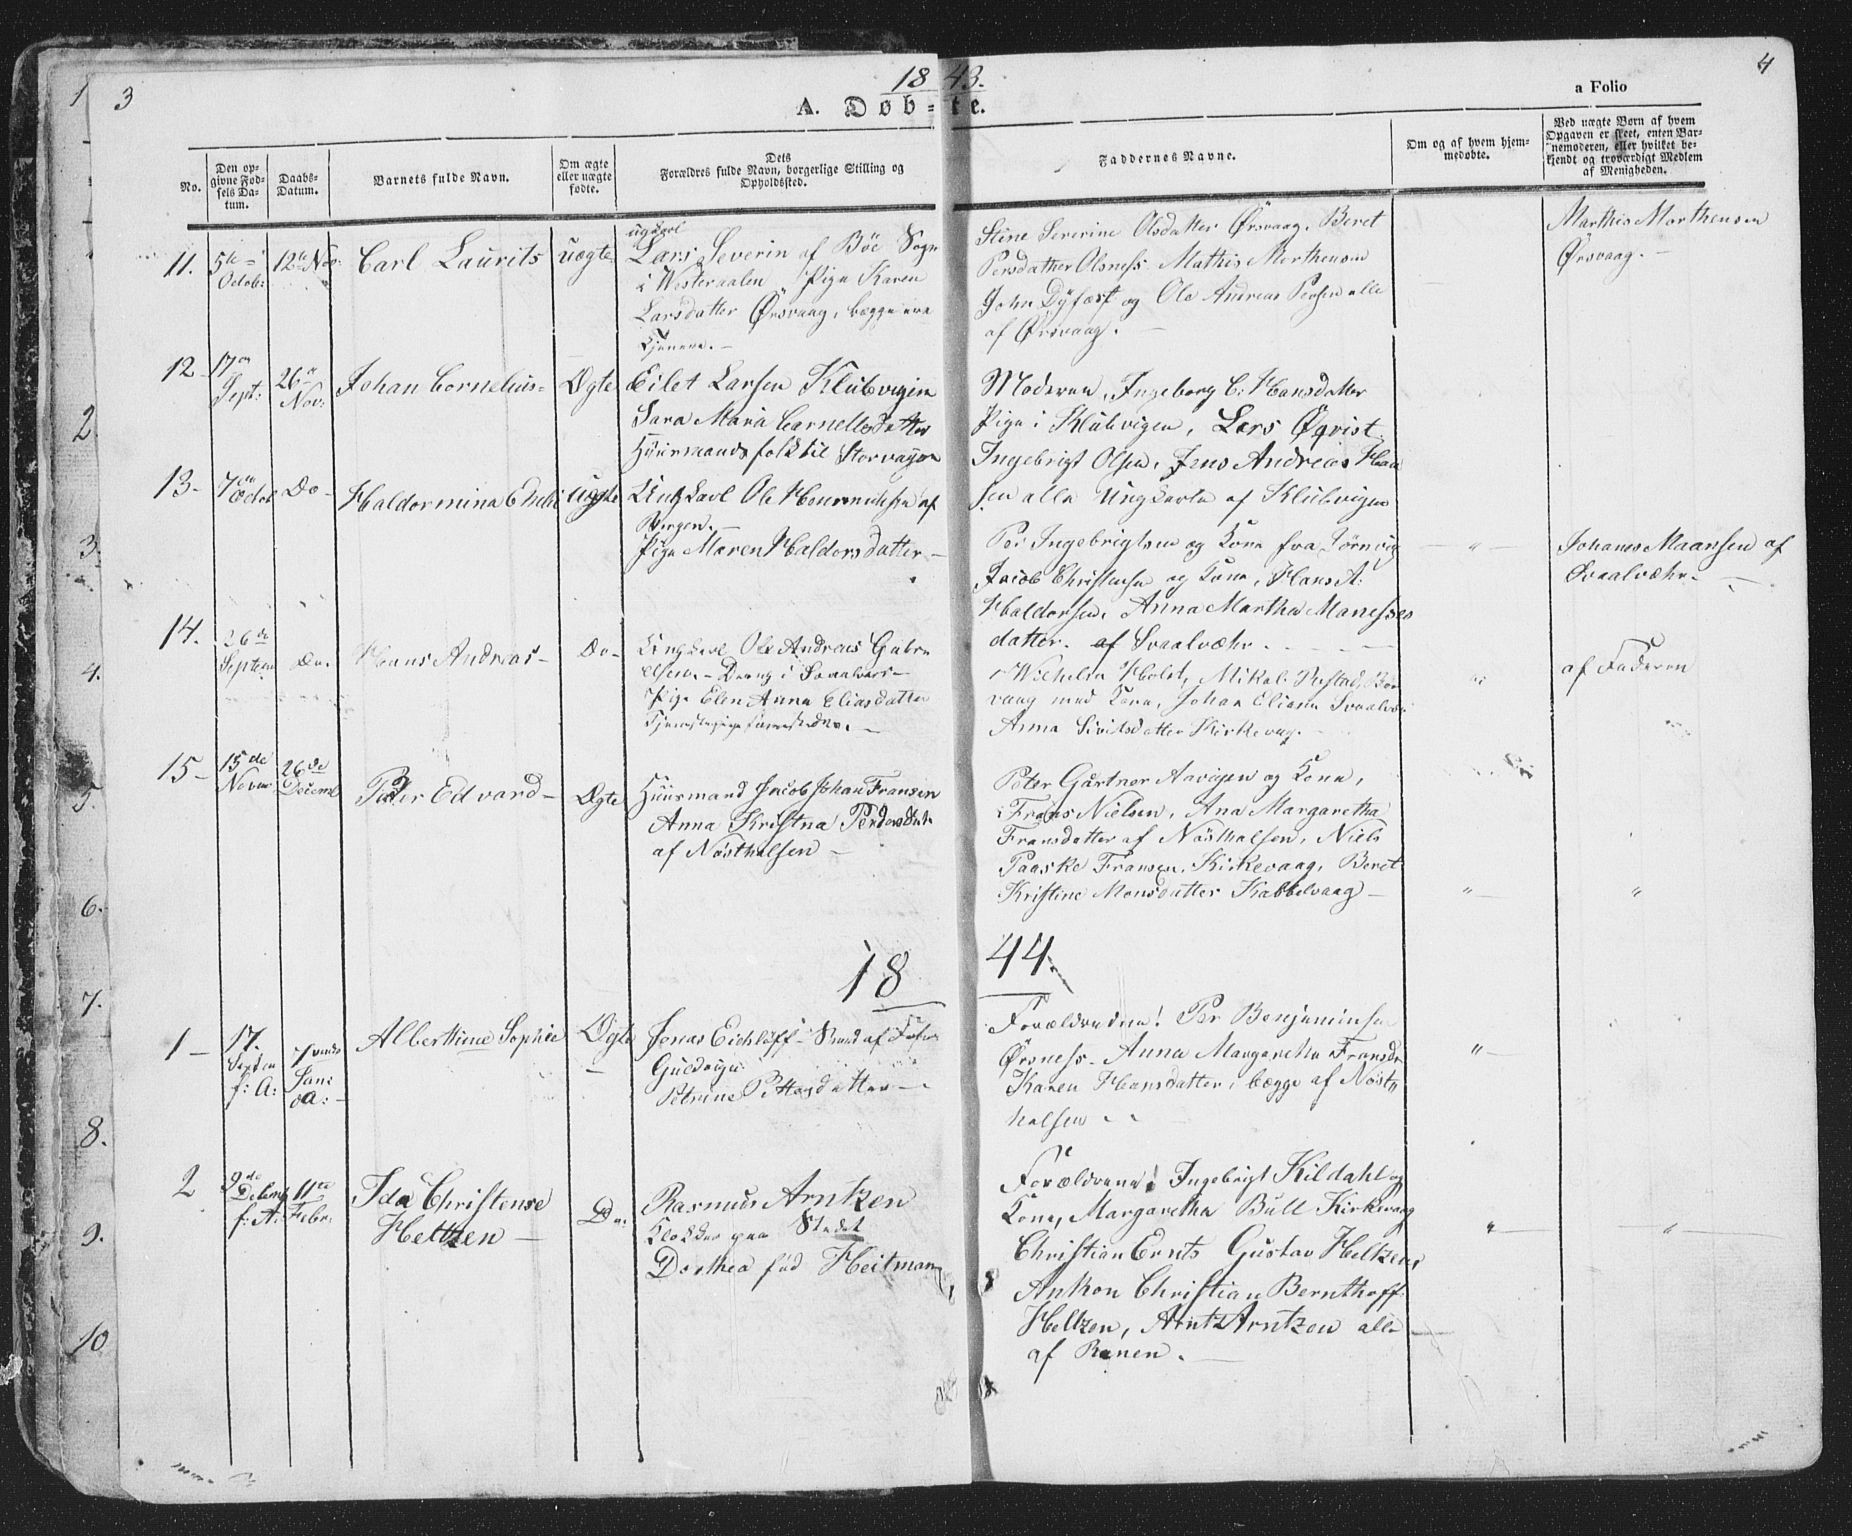 3
18 43.
4
A. Døb-te.
a Folio
No.
Den opgivne Fødsels Datum.
Daabs-Datum.
Barnets fulde Navn.
Om ægte eller uægte fødte.
Dets Forældres fulde Navn, borgerlige Stilling og Opholdssted.
Faddernes Navne.
Om og af hvem hjemmedøbte.
Ved uægte Børn af hvem Opgaven er skeet, enten Barnemoderen, eller hvilket bekjendt og troværdigt Medlem af Menigheden.
11.
5te Octob:
12te Nov:
Carl Laurits
uægte
ugkarl
Lars Severin af Böe Sogn
i Westeraalen Pige Karen
Larsdatter Ørsvaag, begge ere
tjenere. -
Stine Severine Olsdatter Ørsvaag. Beret
Persdatter Olsness. Mathis Morthensen
John Dyfæst og Ole Andreas Persen alle
af Ørsvaag. -
Marthis Morthensen
Ørsvaag. -
12
17en Sept:
26de Nov:
Johan Cornelius
Ægte
Eilet Larsen Klubvigen
Sara Maria Carnellesdatter
Huusmandsfolk til Storvagen
Moderen, Ingeborg C: Hansdatter
Pige i Klubvigen, Lars Øqvist
Ingebrigt Olsen, Jens Andreas Han
sen alle Ungkarle af Klubvigen
13-
7de Octob
Do-
Haldormina
uægte
Ungkarl Ole af
Bergen. -
Pige Maren Haldorsdatter -
Per Ingebrigtsen og Kone fra
Jacob Christensen og Kone, Hans A:
Haldorsen, Anna Martha Manesses
datter. af Svaalvæhr.
"
Johanes Maansen af
Svaalvæhr. -
14.
26de Septem
Do.
Hans Andreas-
Do-
Ungkarl Ole Andreas Gabri
elsen. - Dreng i Svaalvær -
Pige Elen Anna Eliasdatter
Wilhelm Holst, Mikal
vaag med Kone, Johan Eliasen Svaalv
Anna Sivitsdatter Kirkevag.
"
af Faderen
15-
15de Novbr
26de Decemb
Peder Edvard-
Ægte
Huusmand Jacob Johan Fransen
Anna Kristna Pedersdatt
af Nösthalsen -
Peter Gärtner Aavigen og Kone,
Frans Nielsen, Ana Margaretha
Fransdatter af Nösthalsen, Niels
Paaske Fransen, Kirkevaag, Beret
Kristine Monsdatter Kabbelvaag -
"
"
18 44.
1 -
17. Septem f: A:
7ende Jan: d A:
Albertine Sophie
Ægte
Jonas Eidilöff Strand af
Guldvigu
Petrine Pettersdatter -
Forældrene! Per Benjaminsen
Ørsness. Anna Margaretha Fransdr
Karen Hansdatter, begge af Nöst
halsen
"
2
9de Decemb f: A:
11te Febr:
Ida Christense
Heltzen -
Do:
Rasmus Arntzen
Klokker paa Stedet
Dorthea föd Heitman
Forældrene! Ingebrigt Kildahl og
Kone, Margaretha Bull Kirkevaag
Christian Ernts Gustav Heltzen,
Anton Christian Bernthoff
Heltzen, Arntz Arntzen alle
af Ranen. -
"
"
1
2.
3.
4.
5.
6.
7.
8.
9.
10